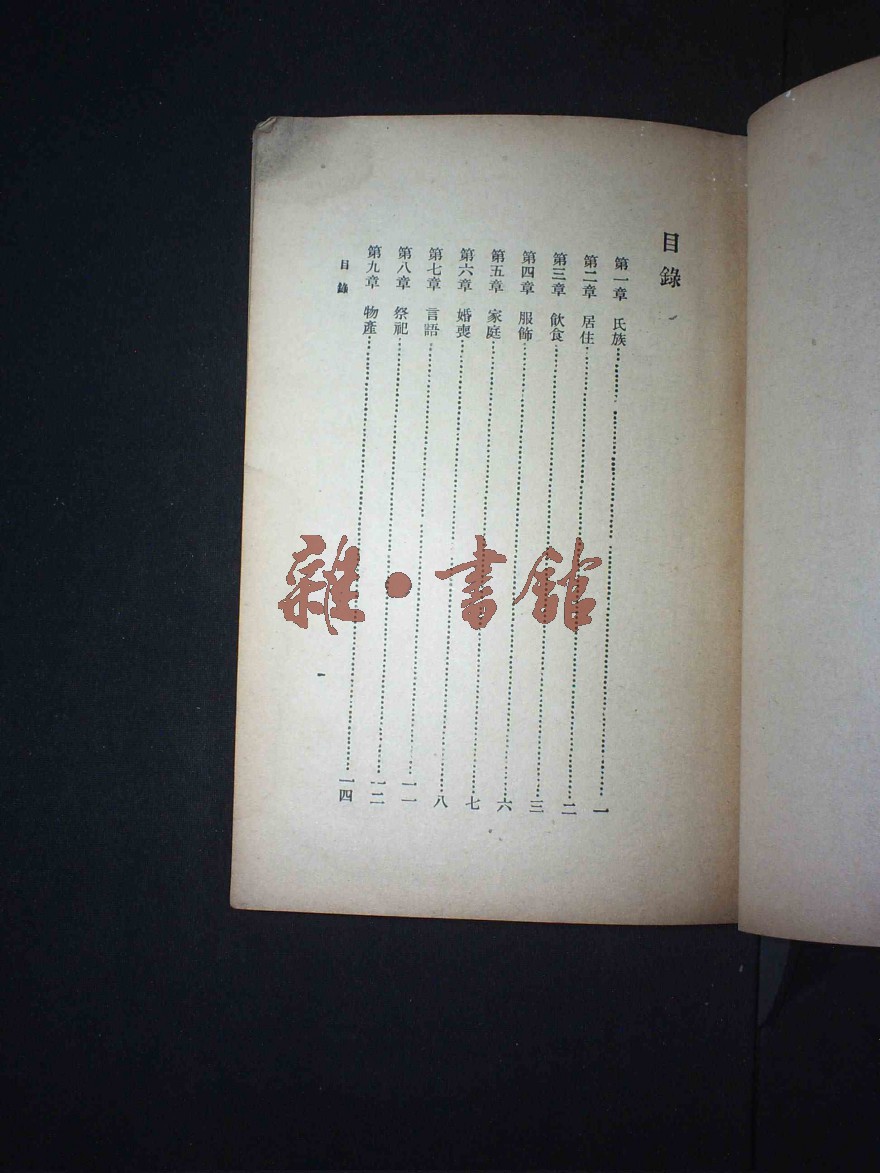 目錄
第一章 氏族………一
第二章 居住………二
第三章 飲食………三
第四章 服飾………六
第五章 家庭………七
第六章 婚喪………八
第七章 言語………一一
第八章 祭祀………一二
第九章 物產………一四
目錄
一
雜·書館